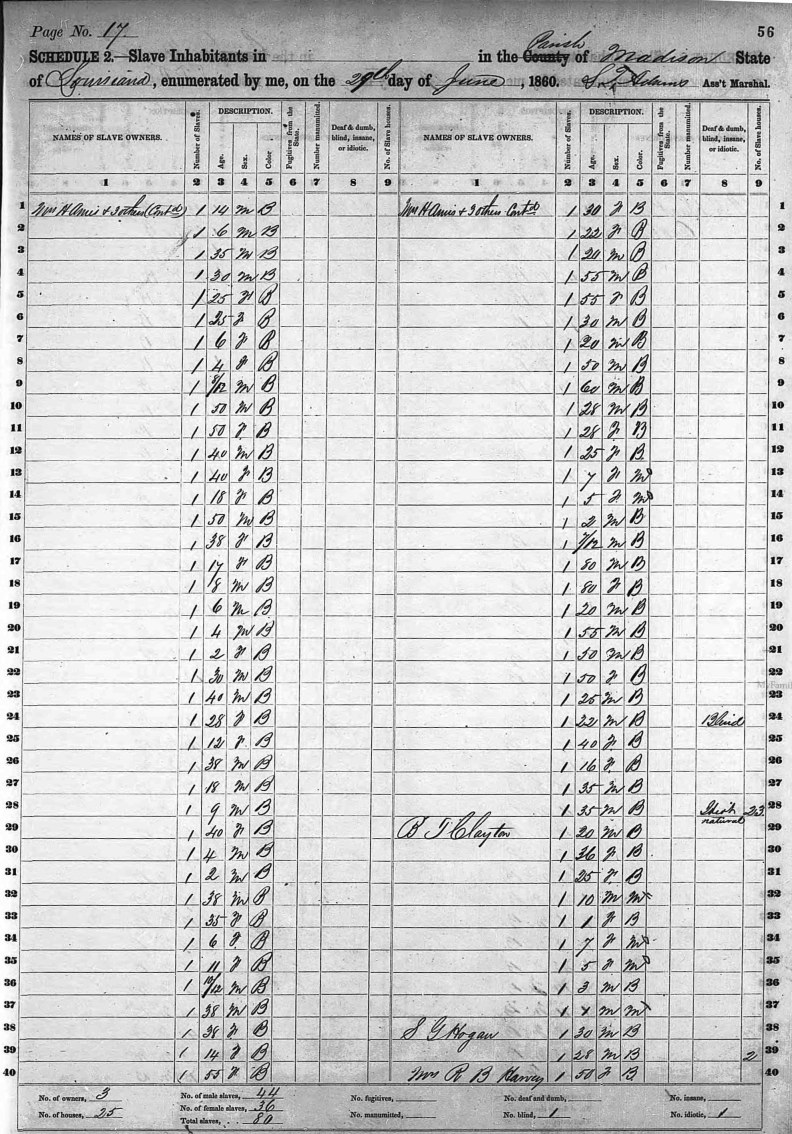 Page No. 17
56
SCHEDULE 2.—Slave Inhabitants in in the County Parish of Madison State
of Louisiana, enumerated by me, on the 29th day of June, 1860. S. T. Adams Ass't Marshal.
NAMES OF SLAVE OWNERS. Number of Slaves. DESCRIPTION. Age. Sex. Color Fugitives from the State. Number manumitted. Deaf & dumb, blind, insane, or idiotic. No. of Slave houses. NAMES OF SLAVE OWNERS. Number of Slaves. DESCRIPTION. Age. Sex. Color. Fugitives from the State. Number manumitted. Deaf & dumb, blind, insane, or idiotic. No. of Slave houses.
1 2 3 4 5 6 7 8 9 1 2 3 4 5 6 7 8 9
1 Wm H Amis & 3 others (Contd) 1 14 M B Wm H Amis & 3 others Contd 1 30 F B 1
2 1 6 M B 1 22 F B 2
3 1 35 M B 1 20 M B 3
4 1 30 M B 1 55 M B 4
5 1 25 F B 1 55 F B 5
6 1 25 F B 1 30 M B 6
7 1 6 F B 1 20 M B 7
8 1 4 F B 1 50 M B 8
9 1 8/12 M B 1 60 M B 9
10 1 50 M B 1 28 M B 10
11 1 50 F B 1 28 F B 11
12 1 40 M B 1 25 F B 12
13 1 40 F B 1 7 F M 13
14 1 18 F B 1 5 F M 14
15 1 50 M B 1 2 M B 15
16 1 38 F B 1 7/12 M B 16
17 1 17 F B 1 80 M B 17
18 1 8 M B 1 80 F B 18
19 1 6 M B 1 20 M B 19
20 1 4 M B 1 55 M B 20
21 1 2 F B 1 50 M B 21
22 1 30 M B 1 50 F B 22
23 1 40 M B 1 25 M B 23
24 1 28 F B 1 22 M B Blind 24
25 1 12 F B 1 40 F B 25
26 1 38 M B 1 16 F B 26
27 1 18 M B 1 35 M B 27
28 1 9 M B 1 35 M B Idiot natural 23 28
29 1 40 F B B T Clayton 1 20 M B 29
30 1 4 M B 1 36 F B 30
31 1 2 M B 1 25 F B 31
32 1 38 M B 1 10 M M 32
33 1 35 F B 1 1 F B 33
34 1 6 F B 1 7 F M 34
35 1 11 F B 1 5 F M 35
36 1 10/12 M B 1 3 M B 36
37 1 38 M B 1 M M 37
38 1 38 F B S G Hogan 1 30 M B 38
39 1 14 F B 1 28 M B 2 39
40 1 55 F B Mrs R B Harvey 1 50 F B 40
No. of owners, 3 No. of male slaves, 44 No. fugitives, No. deaf and dumb, No. insane,
No. of houses, 25 No. of female slaves, 36 No. manumitted, No. blind, 1 No. idiotic, 1
Total slaves, 80